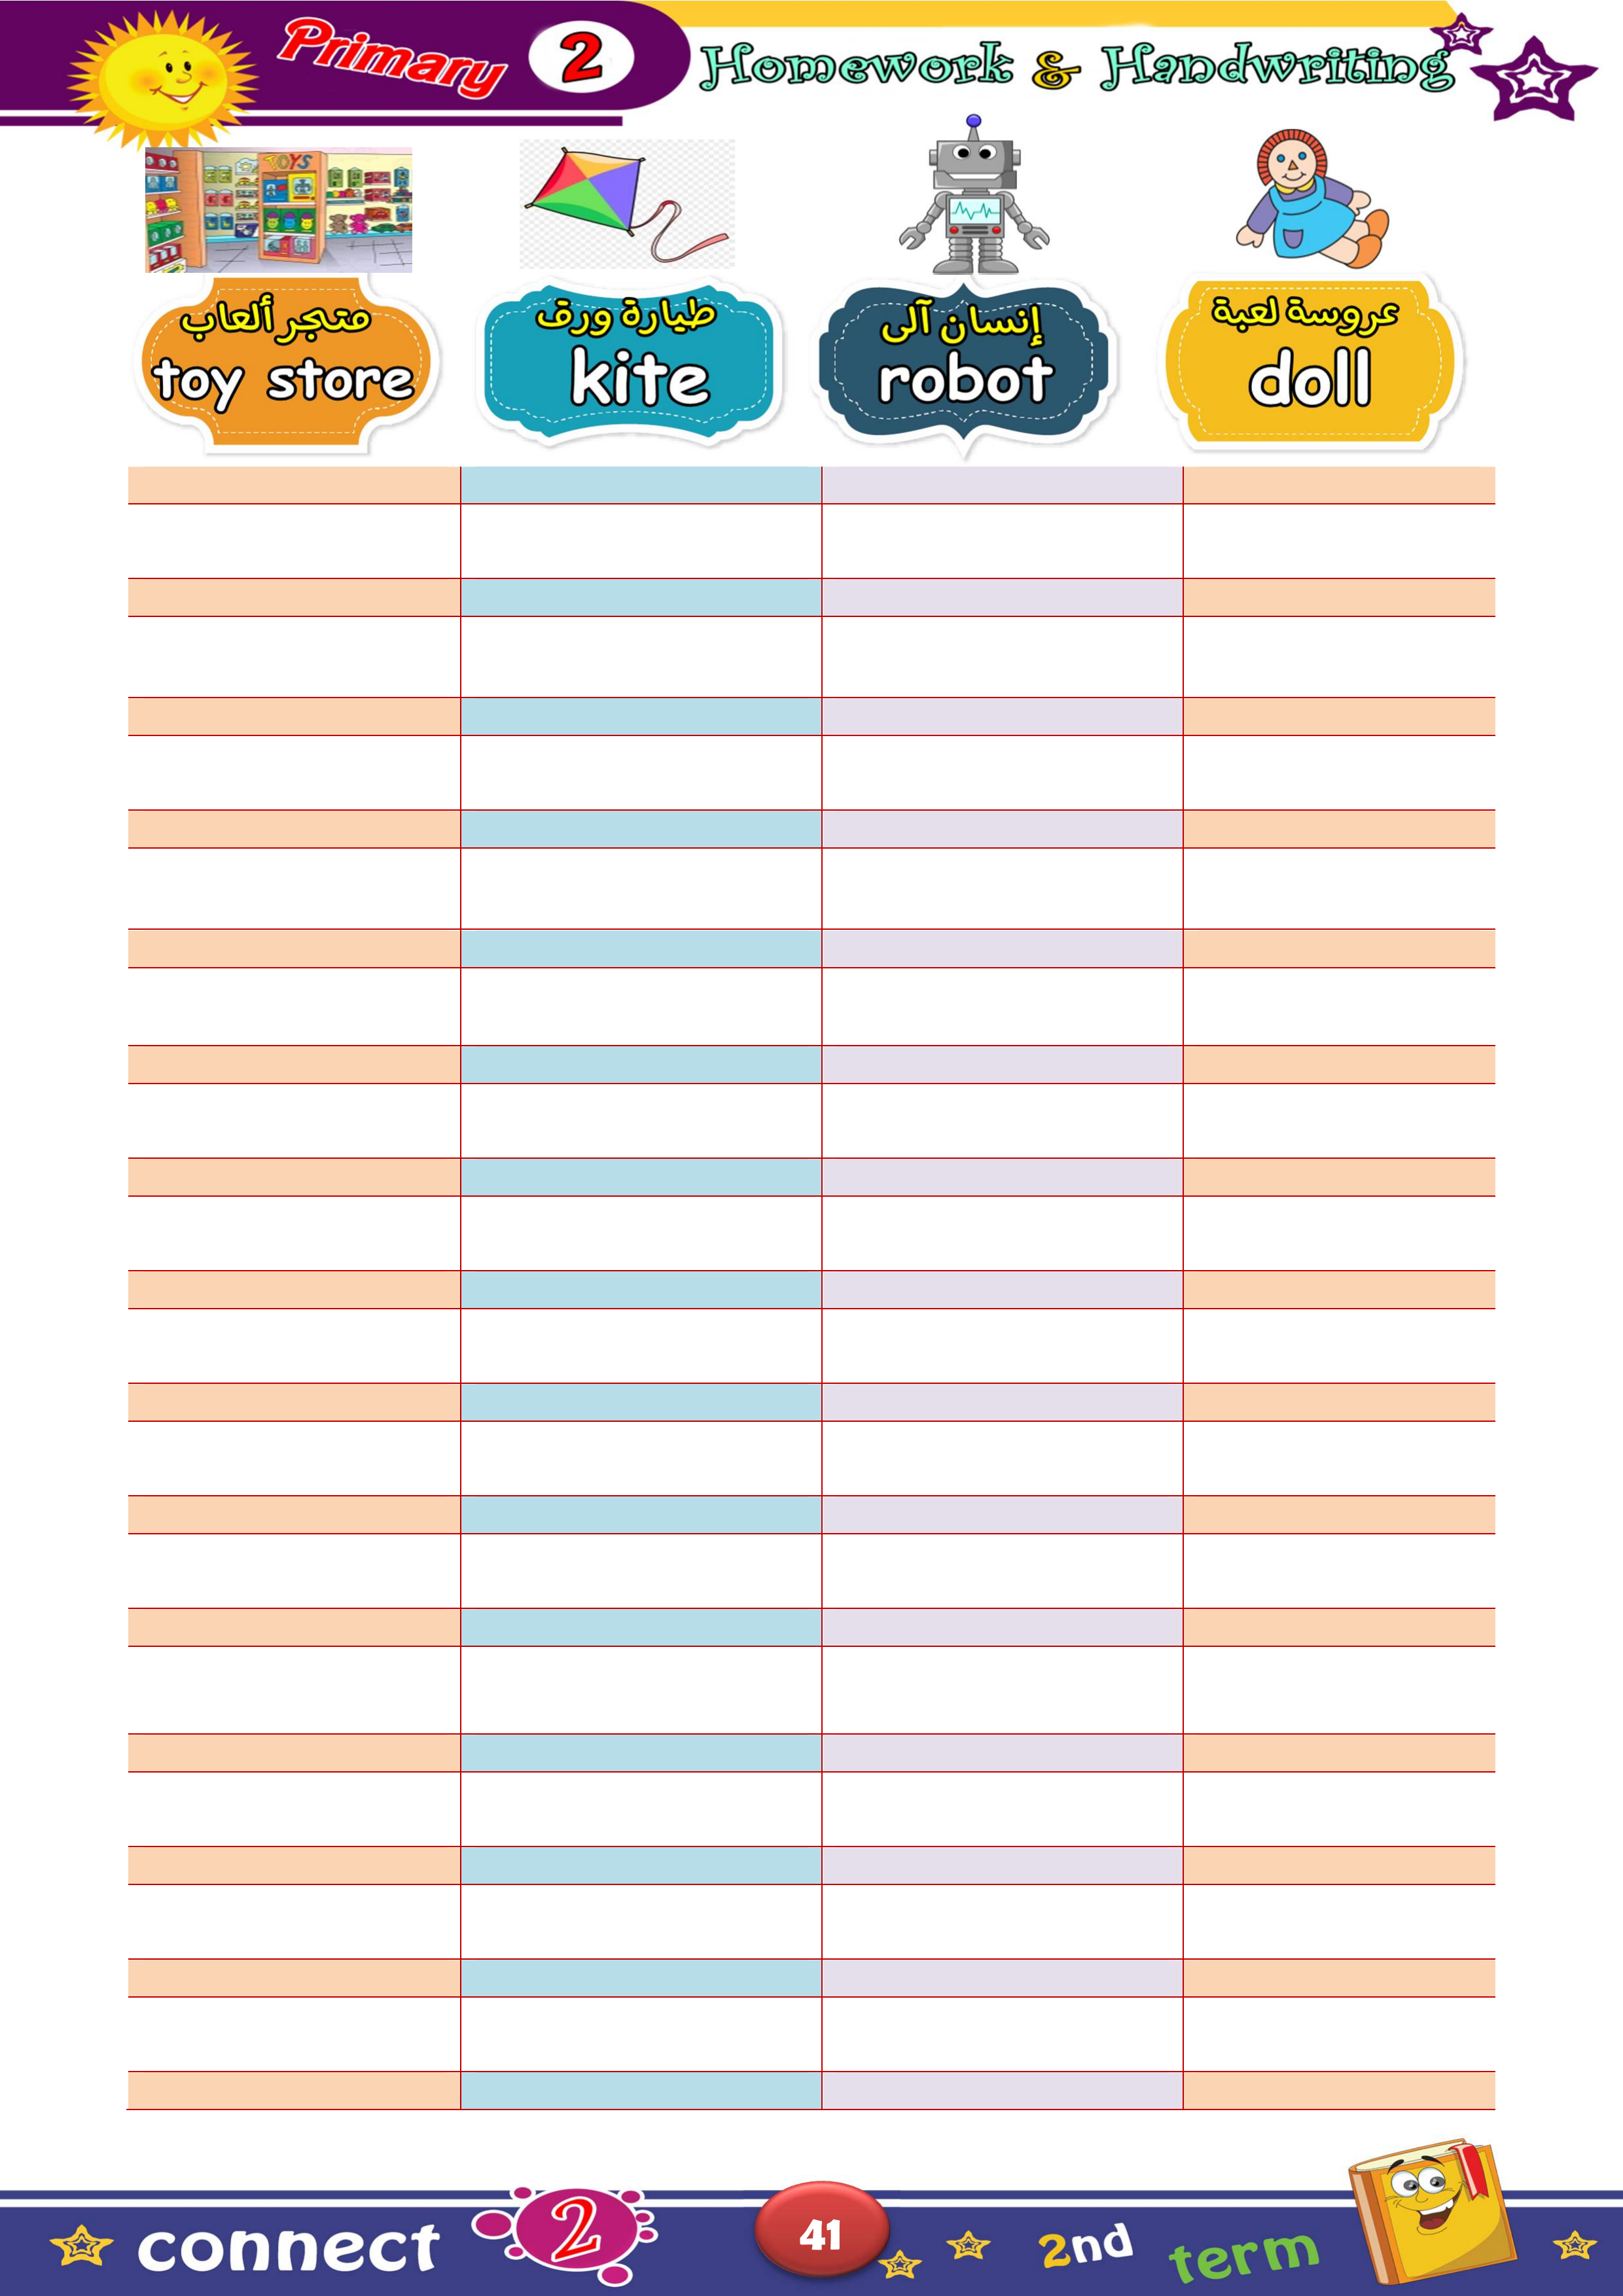 Primary 2 Homework & Handwriting
TOYS
متجر ألعاب
toy store
طيارة ورق
kite
إنسان آلى
robot
عروسة لعبة
doll
connect 2
41
2nd term